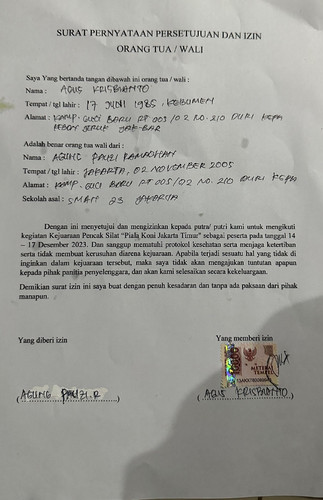 SURAT PERNYATAAN PERSETUJUAN DAN IZIN
ORANG TUA / WALI
Saya Yang Bertanda tangan dibawah ini orang tua / wali :
Nama : AGUS KRISBIANTO
Tempat / tgl lahir : 17 JUNI 1985, KEBUMEN
Alamat : KAMP. GUCI BARU RT 005/02 NO. 210 DURI KEPA
KEBON JERUK JAK-BAR
Adalah benar orang tua wali dari :
Nama : AGUNG FAUZI RAMADHAN
Tempat / tgl lahir : JAKARTA, 02 NOVEMBER 2005
Alamat : KAMP. GUCI BARU RT 005/02 NO. 210 DURI KEPA
Sekolah asal : SMAN 23 JAKARTA
Dengan ini menyetujui dan mengizinkan kepada putra/ putri kami untuk mengikuti
kegiatan Kejuaraan Pencak Silat "Piala Koni Jakarta Timur" sebagai peserta pada tanggal 14
– 17 Desember 2023. Dan sanggup mematuhi protokol kesehatan serta menjaga ketertiban
serta tidak membuat kerusuhan diarena kejuaraan. Apabila terjadi sesuatu hal yang tidak di
inginkan dalam kejuaraan tersebut, maka saya tidak akan mengajukan tuntutan apapun
kepada pihak panitia penyelenggara, dan akan kami selesaikan secara kekeluargaan.
Demikian surat izin ini saya buat dengan penuh kesadaran dan tanpa ada paksaan dari pihak
manapun.
Yang diberi izin
Yang memberi izin
METERAI
TEMPEL
(AGUNG FAUZI.R)
(AGUS KRISBIANTO)